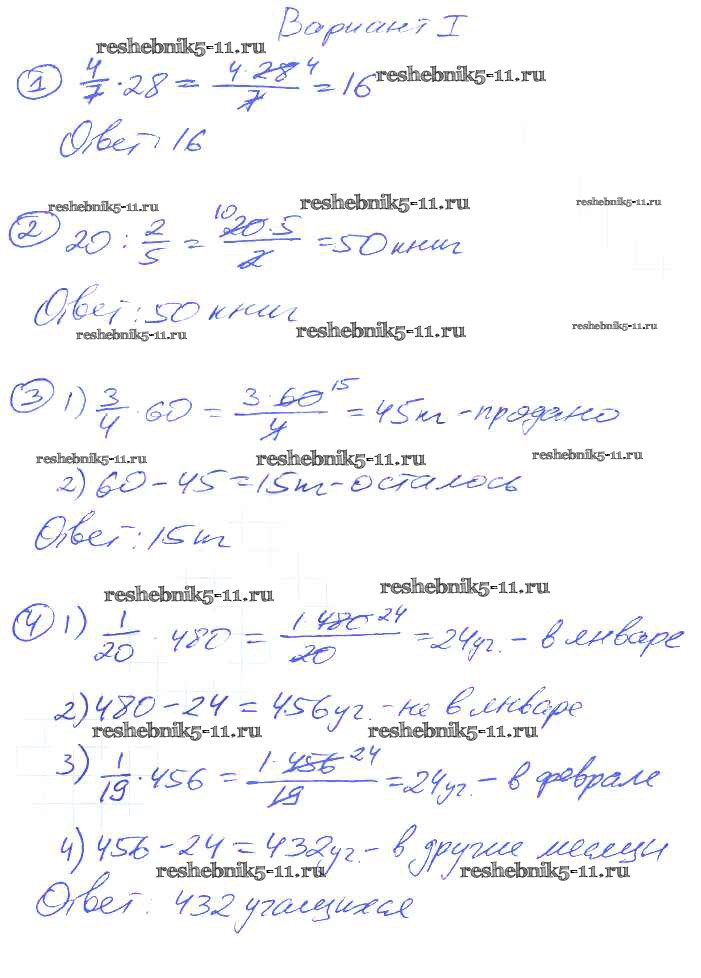 Вариант I
reshebnik5-11.ru
1 4/7 · 28 = 4·28 4/7 = 16 reshebnik5-11.ru
Ответ: 16
reshebnik5-11.ru reshebnik5-11.ru reshebnik5-11.ru
2 20 : 2/5 = 10 20·5/2 = 50 книг
Ответ: 50 книг
reshebnik5-11.ru reshebnik5-11.ru reshebnik5-11.ru
3 1) 3/4 · 60 = 3·60 15/4 = 45 кг - продано
reshebnik5-11.ru reshebnik5-11.ru reshebnik5-11.ru
2) 60 - 45 = 15 кг - осталось
Ответ: 15 кг
reshebnik5-11.ru reshebnik5-11.ru
4 1) 1/20 · 480 = 1·480 24/20 = 24 уч. - в январе
2) 480 - 24 = 456 уч. - не в январе
reshebnik5-11.ru reshebnik5-11.ru
3) 1/19 · 456 = 1·456 24/19 = 24 уч. - в феврале
4) 456 - 24 = 432 уч. - в другие месяцы
reshebnik5-11.ru reshebnik5-11.ru
Ответ: 432 учащихся